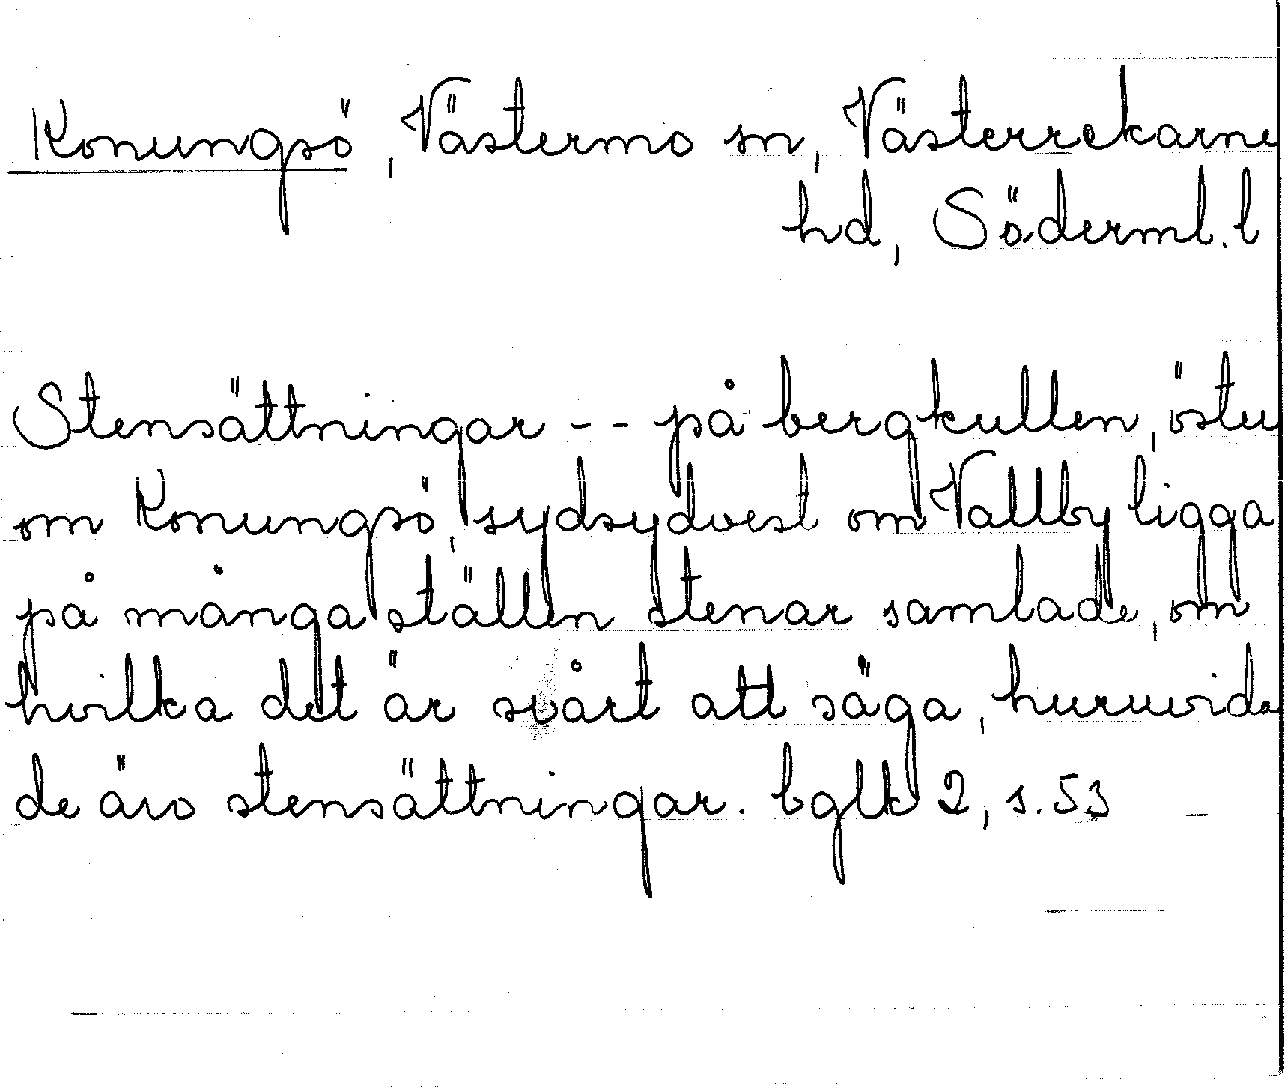 Konungsö, Västermo sn, Västerrekarne
hd, Söderml. l
Stensättningar -- på bergkullen, öster
om Konungsö, sydsydvest om Vallby ligga
på många ställen stenar samlade, om
hvilka det är svårt att säga, huruvida
de äro stensättningar. bglk 2, s. 53